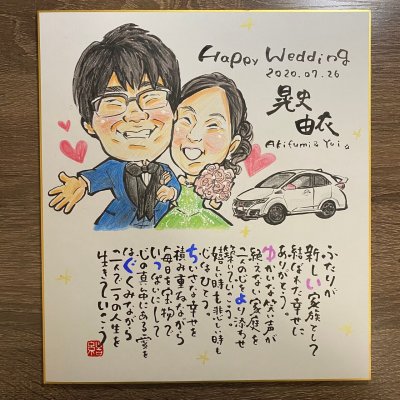 Happy Wedding
2020.07.26
晃史
由衣
Akifumi & Yui。
ふたりが
新しい家族として
結ばれた幸せに
ありがとう。
ゆかいな笑い声が
絶えない家庭を
二人の心をより添わせ
築いていこう。
嬉しい時も悲しい時も
心はひとつ。
ちいさな幸せを
積み重ねながら
毎日を宝物で
いっぱいにして
心の真ん中にある愛を
はぐくみながら
二人で一つの人生を
生きていこう